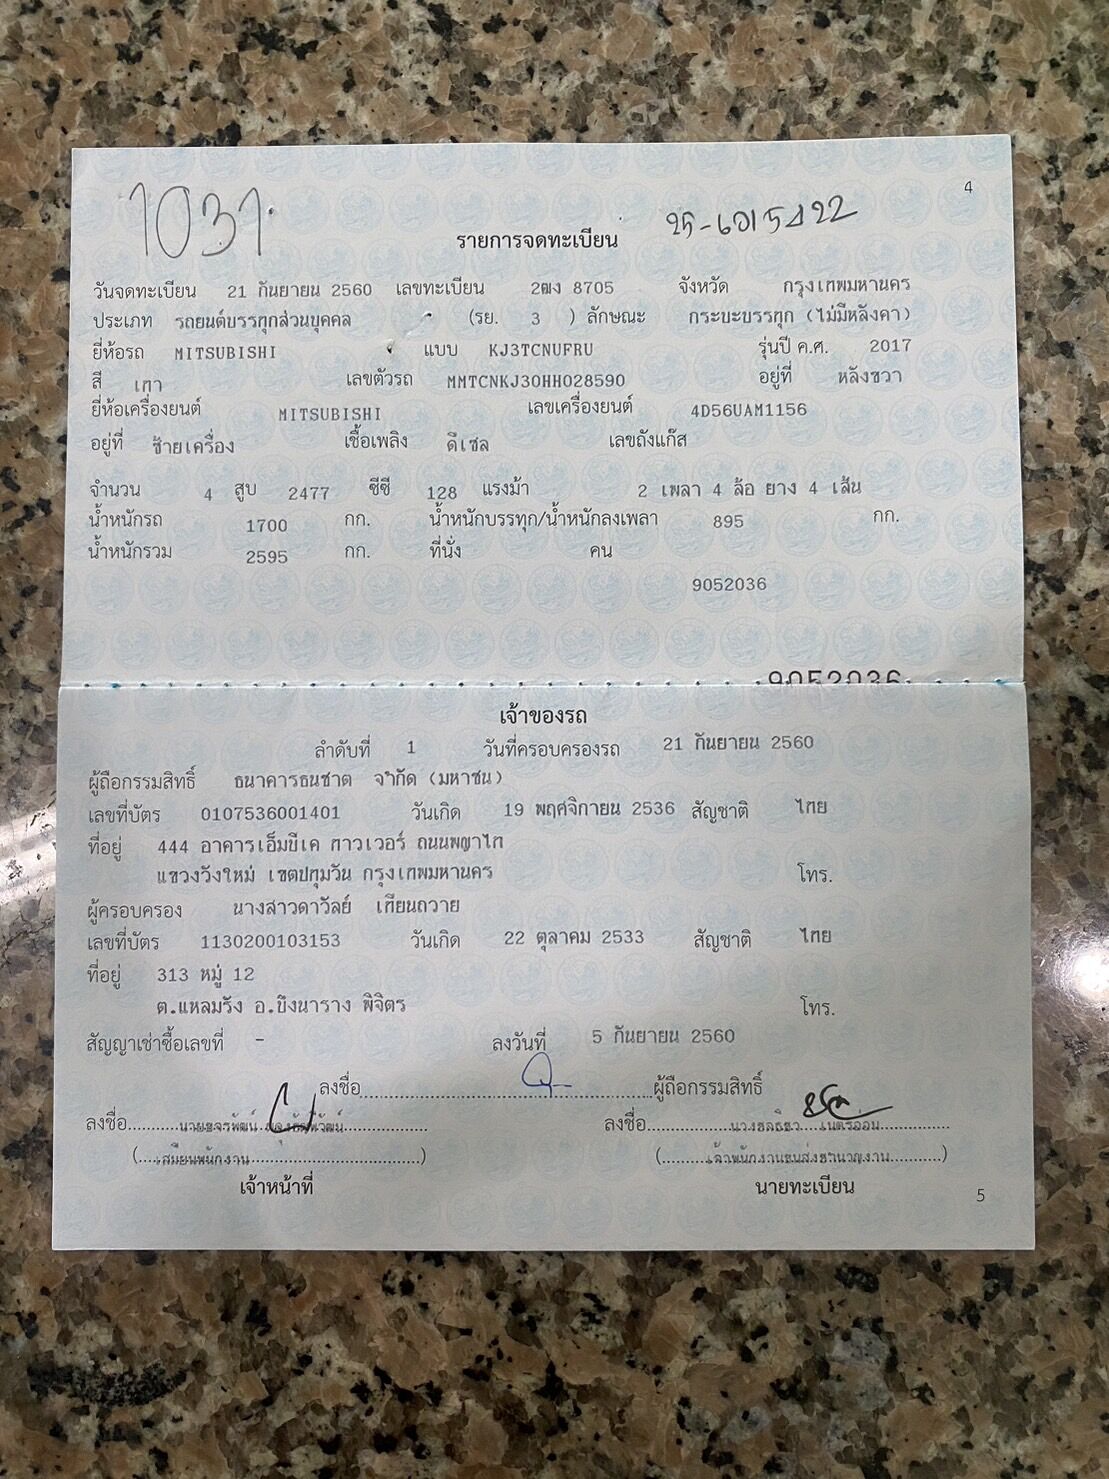 4
1031
25-
รายการจดทะเบียน
วันจดทะเบียน 21 กันยายน 2560 เลขทะเบียน 2ฒง 8705 จังหวัด กรุงเทพมหานคร
ประเภท รถยนต์บรรทุกส่วนบุคคล (รย. 3 ) ลักษณะ กระบะบรรทุก (ไม่มีหลังคา)
ยี่ห้อรถ MITSUBISHI แบบ KJ3TCNUFRU รุ่นปี ค.ศ. 2017
สี เทา เลขตัวรถ MMTCNKJ30HH028590 อยู่ที่ หลังขวา
ยี่ห้อเครื่องยนต์ MITSUBISHI เลขเครื่องยนต์ 4D56UAM1156
อยู่ที่ ซ้ายเครื่อง เชื้อเพลิง ดีเซล เลขถังแก๊ส
จำนวน 4 สูบ 2477 ซีซี 128 แรงม้า 2 เพลา 4 ล้อ ยาง 4 เส้น
น้ำหนักรถ 1700 กก. น้ำหนักบรรทุก/น้ำหนักลงเพลา 895 กก.
น้ำหนักรวม 2595 กก. ที่นั่ง คน
9052036
9052036
เจ้าของรถ
ลำดับที่ 1 วันที่ครอบครองรถ 21 กันยายน 2560
ผู้ถือกรรมสิทธิ์ ธนาคารธนชาต จำกัด (มหาชน)
เลขที่บัตร 0107536001401 วันเกิด 19 พฤศจิกายน 2536 สัญชาติ ไทย
ที่อยู่ 444 อาคารเอ็มบีเค ทาวเวอร์ ถนนพญาไท
แขวงวังใหม่ เขตปทุมวัน กรุงเทพมหานคร โทร.
ผู้ครอบครอง นางสาวดาวัลย์ เทียนถวาย
เลขที่บัตร 1130200103153 วันเกิด 22 ตุลาคม 2533 สัญชาติ ไทย
ที่อยู่ 313 หมู่ 12
ต.แหลมรัง อ.บึงนาราง พิจิตร โทร.
สัญญาเช่าซื้อเลขที่ - ลงวันที่ 5 กันยายน 2560
ลงชื่อ ผู้ถือกรรมสิทธิ์
ลงชื่อ ลงชื่อ
(เสมียนพนักงาน) (เจ้าพนักงานขนส่งชำนาญงาน)
เจ้าหน้าที่ นายทะเบียน
5